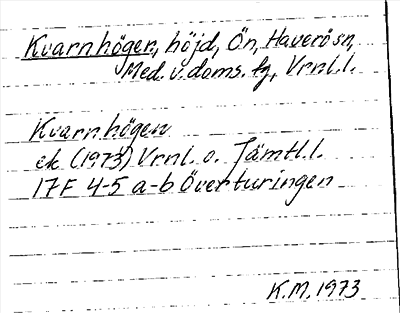 Kvarnhögen, höjd, Ön, Haverö sn,
Med. v. doms. tg, Vrnl. l.
Kvarnhögen
ek (1973) Vrnl. o. Jämtl. l.
17F 4-5 a-b Överturingen
K.M. 1973